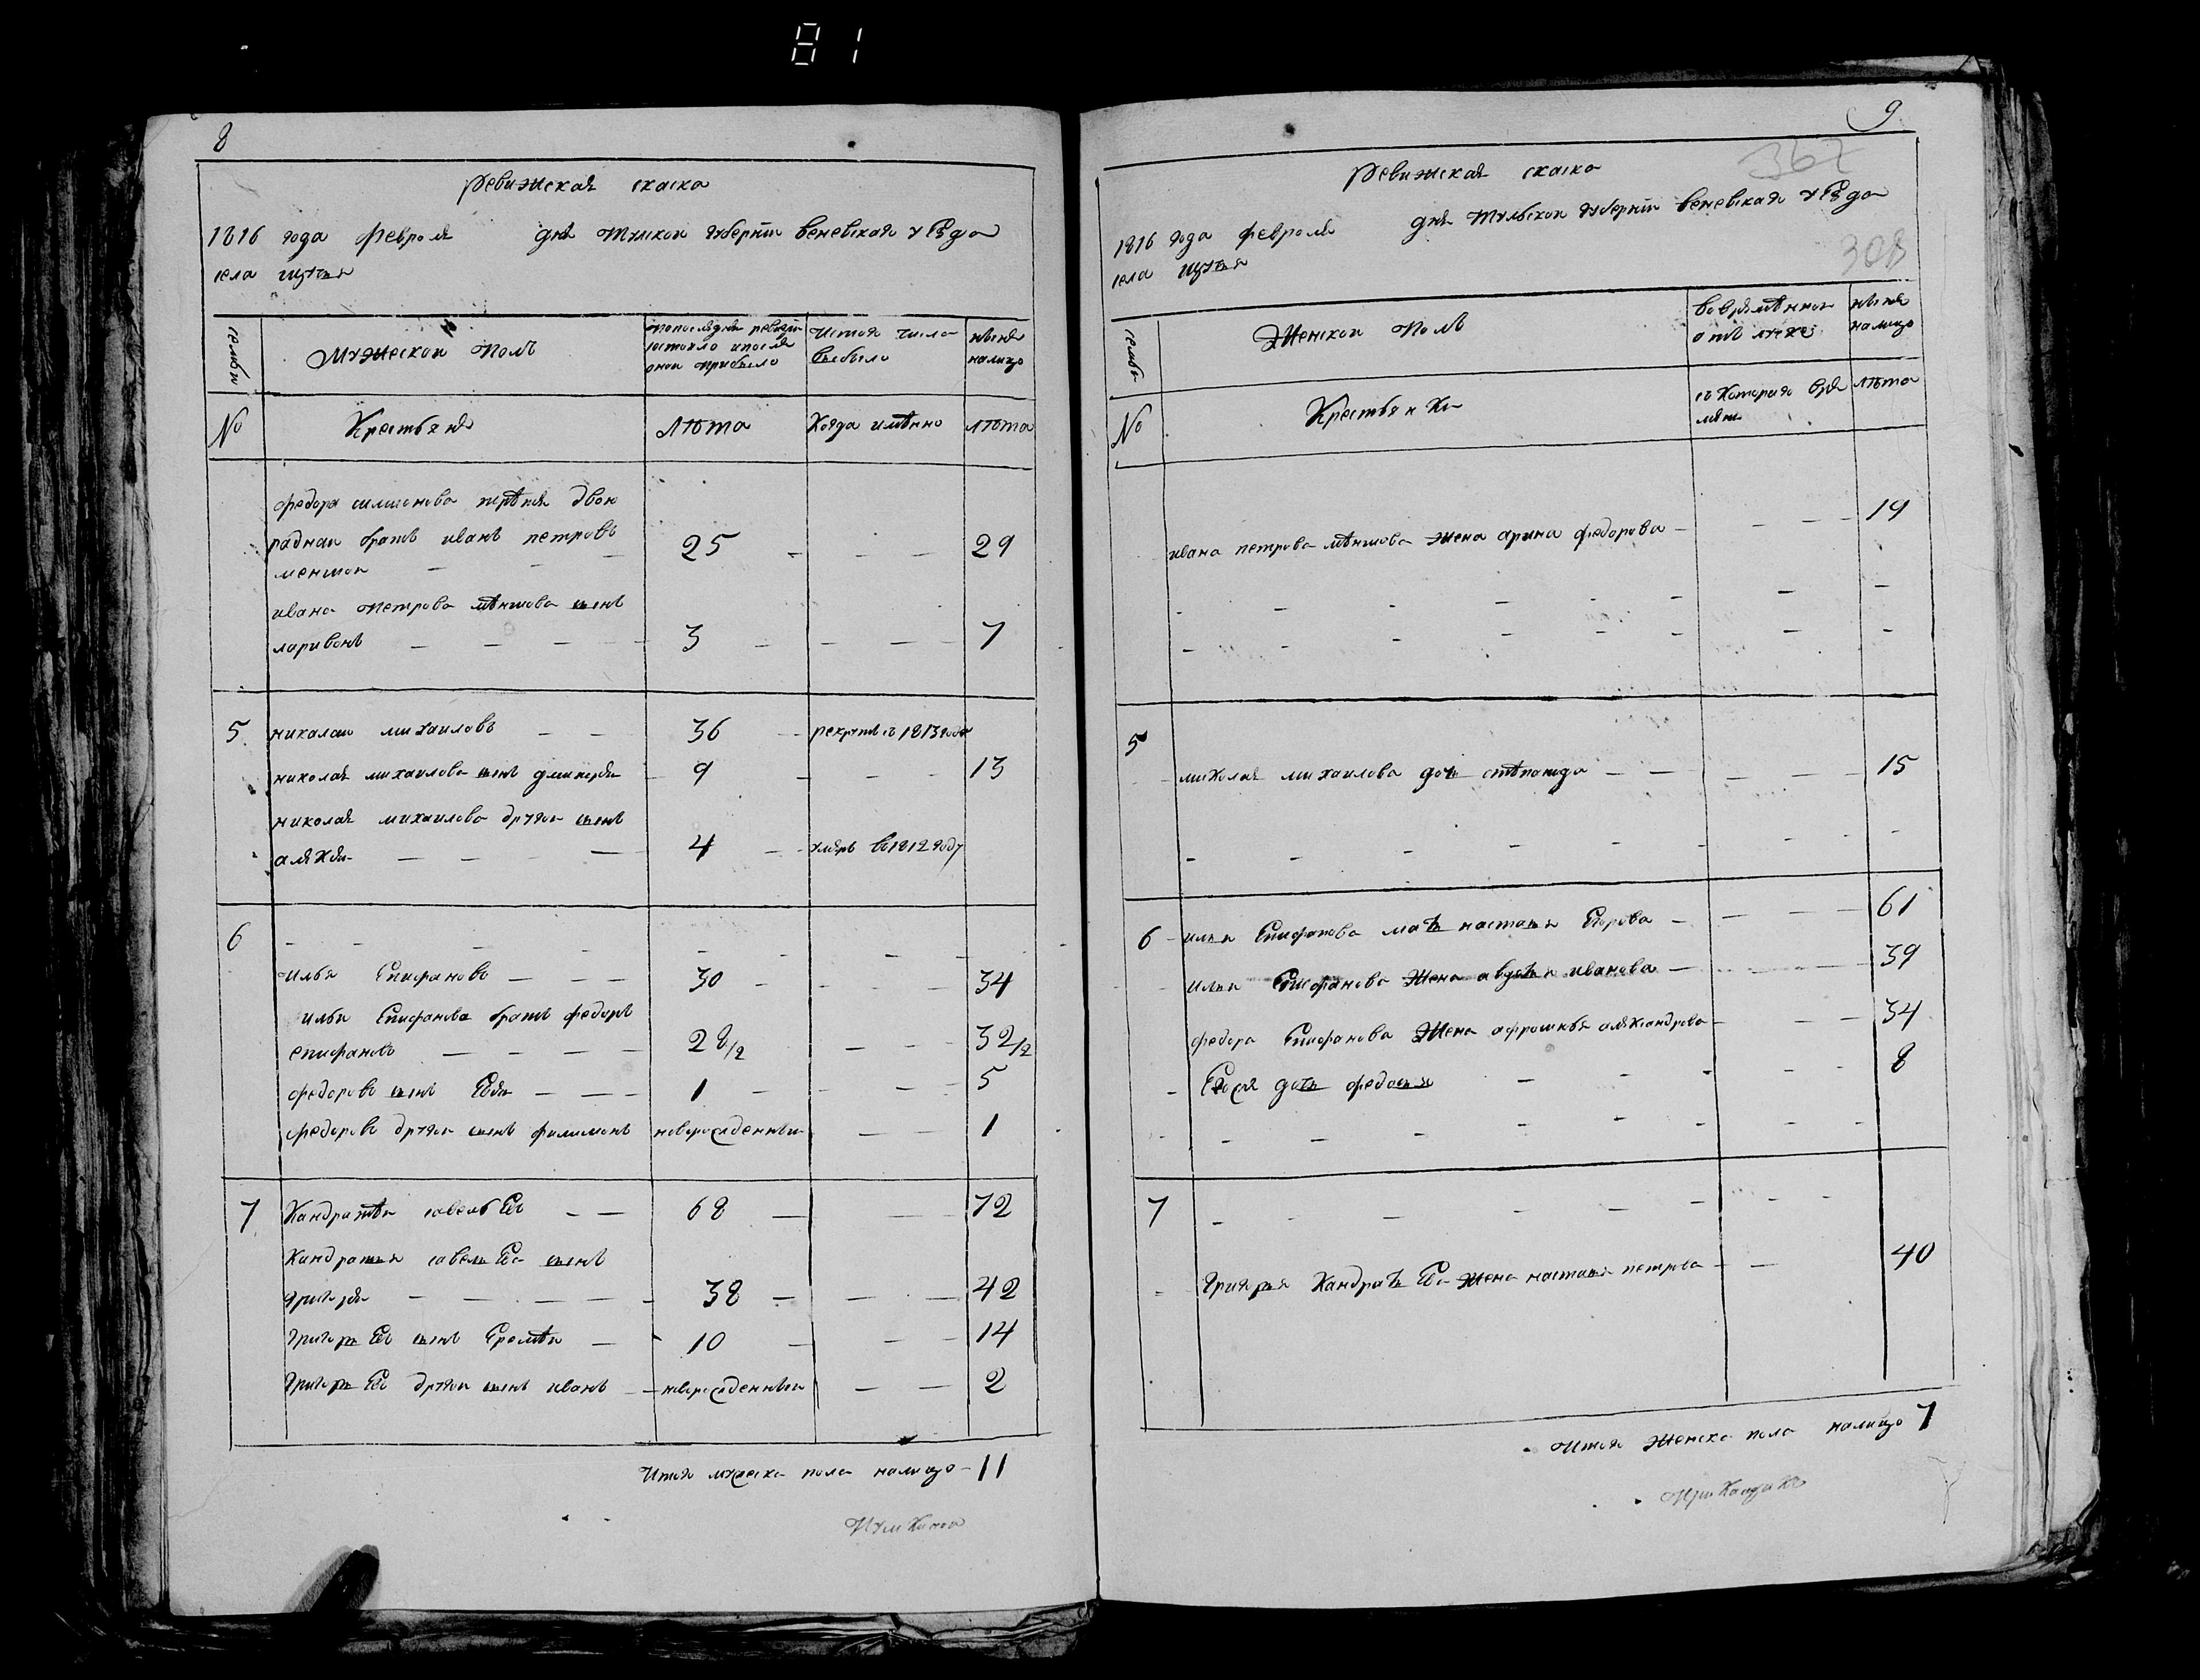 81
8
Ревижская скаска
1816 года февраля дня тулской губернiи веневскаго уезда
села щучья
семьи
Мужеской полъ
попоследней ревизiи состояло ипосля оной прибыло
Истого числа выбыло
ныне налицо
№
Крестьяне
лѣта
Когда имѣнно
лѣта
федора двою
родной братъ иванъ петровъ
меншой 25 29
ивана петрова мѣншова сынъ
ларивонъ 3 7
5 николаи михаиловъ 36 рекрутѣ съ 1813 года
николая михаилова сынъ дмитреи 9 13
николая михаилова другой сынъ
алѣксѣи 4 умѣръ в 1812 году
6
илья Епифановъ 30 34
ильи Епифанова братъ федоръ
епифановъ 28/2 32/2
федоровъ сынъ 1 5
федоровъ другой сынъ филимонъ новорожденныи 1
7 Кандратѣи савельЕвъ 68 72
Кандратья савельЕва сынъ
григореи 38 42
григорьЕвъ сынъ Еремѣи 10 14
григорьЕвъ другои сынъ иванъ новорожденныи 2
Итого мужска пола налицо 11
9
367
308
Ревижская скаска
1816 года февраля дня тульской губернiи веневскаго уезда
села щучья
семьи
Женской полъ
вовремѣнной отлучке
ныне налицо
№
Крестьянки
съ Котораго времяни
лѣта
ивана петрова мѣншова жена арина федорова 19
5
николая михаилова дочь стѣпанида 15
6 ильи Епифанова мать настасья Егорова 61
ильи Епифанова жена авдотья иванова 39
федора Епифанова Жена афросинья алѣксандрова 34
дочь федосья 8
7
григорья КандратьЕва жена настасья петрова 40
Итого женска пола налицо 7